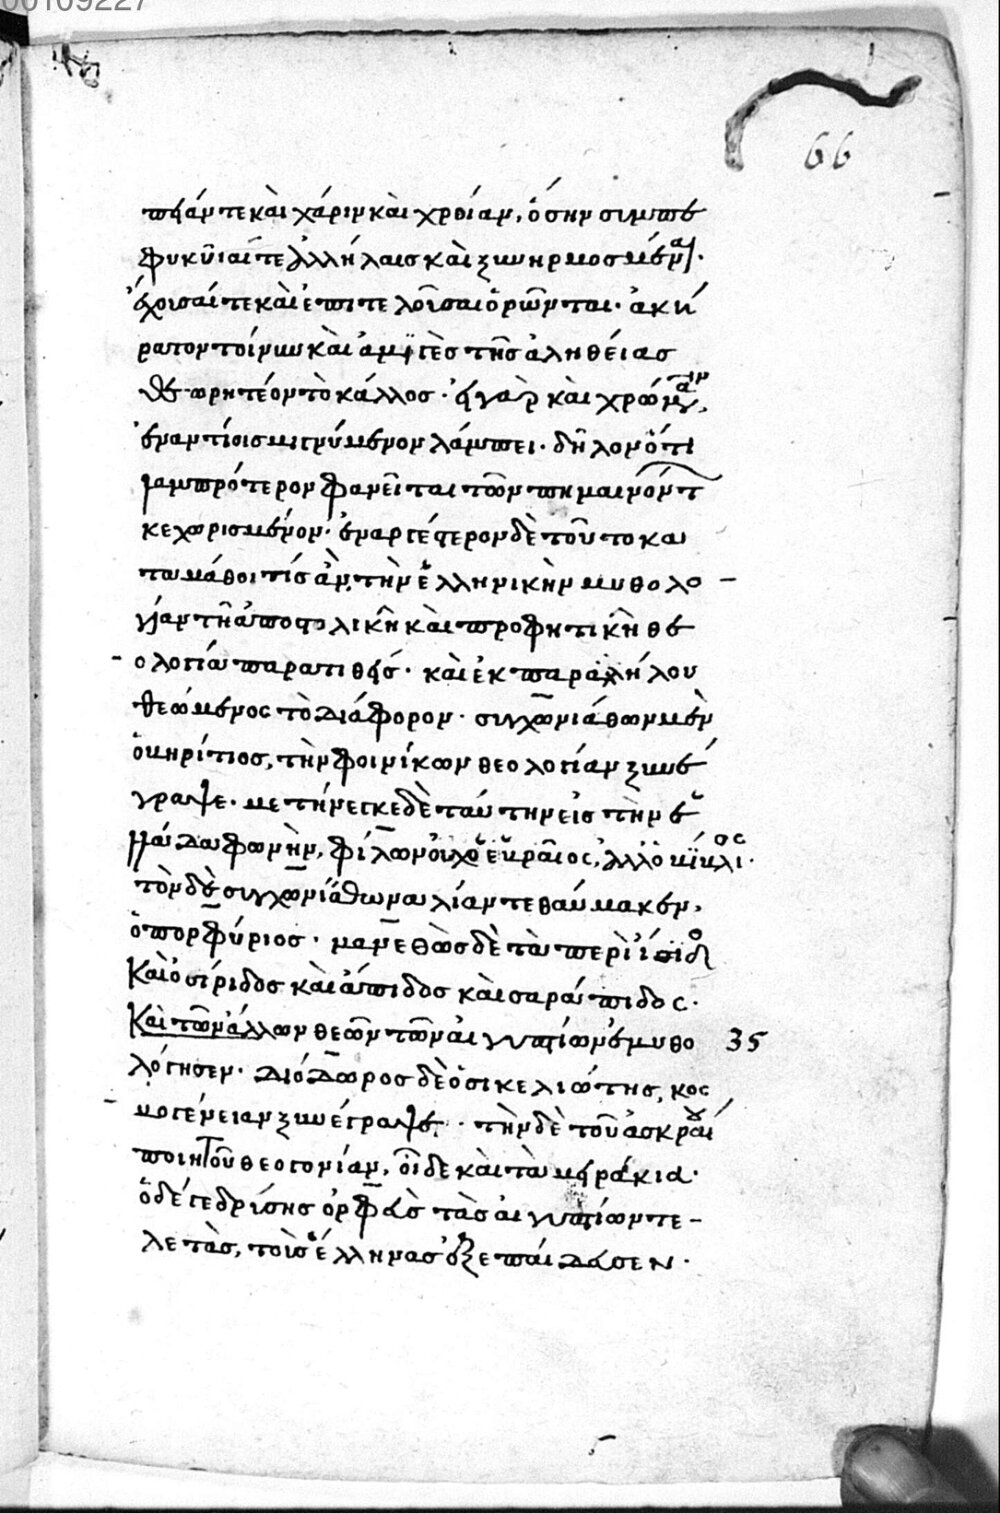 00109227
66
πείαν τε καὶ χάριν καὶ χροίαν, ὅσην συμπε
φυκυῖαί τε ἀλλήλαις καὶ ξυνηρμοσμέναι·
ἔχουσαί τε καὶ ἐπιτελοῦσαι ὁρῶνται· ἀκή
ρατον τοίνυν καὶ ἀμιγὲς τῆς ἀληθείας
θεωρητέον τὸ κάλλος· εἰ γὰρ καὶ χρώμασιν
ἐναντίοις μιγνύμενον λάμπει· δῆλον ὅτι
λαμπρότερον φανεῖται τῶν πημαινόντ
κεχωρισμένον· ἐναργέστερον δὲ τοῦτο κα
ταμάθοι τίς ἂν, τὴν ἑλληνικὴν μυθολο
γίαν τῇ ἀποστολικῇ καὶ προφητικῇ θε
ολογία παρατιθείς· καὶ ἐκ παραλλήλου
θεώμενος τὸ διάφορον· συγχωνιάθων μὲν
ὁ κηρίτιος, τὴν φοινίκων θεολογίαν ξυνέ
γραψε· μετήνεγκε δὲ ταύτην εἰς τὴν ἑ
λλάδα φωνὴν, φίλων οὐχ ὁ ἑβραῖος, ἀλλ' ὁ βύβλιος·
τὸν δὲ συγχωνιάθωνα λίαν τεθαύμακεν,
ὁ πορφύριος· μανεθὼς δὲ τὰ περὶ ἴσιδος
Καὶ ὀσίριδος καὶ ἄπιδος καὶ σαράπιδος·
Καὶ τῶν ἄλλων θεῶν τῶν αἰγυπτίων ἐμυθο
35
λόγησεν· Διόδωρος δὲ ὁ σικελιώτης, κος
μογένειαν ξυνέγραψε· τὴν δὲ τοῦ ἀσκραίου
ποιητοῦ θεογονίαν, οἶδε καὶ τὰ μειράκια·
ὁ δέ γε δρύσης ὀρφεὺς τὰς αἰγυπτίων τε-
λετὰς, τοὺς ἕλληνας ἐξεπαίδευσεν·